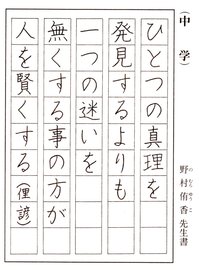 （中学）
野村侑香先生書
のむらゆうこ
ひとつの真理を
発見するよりも
一つの迷いを
無くする事の方が
人を賢くする（俚諺）